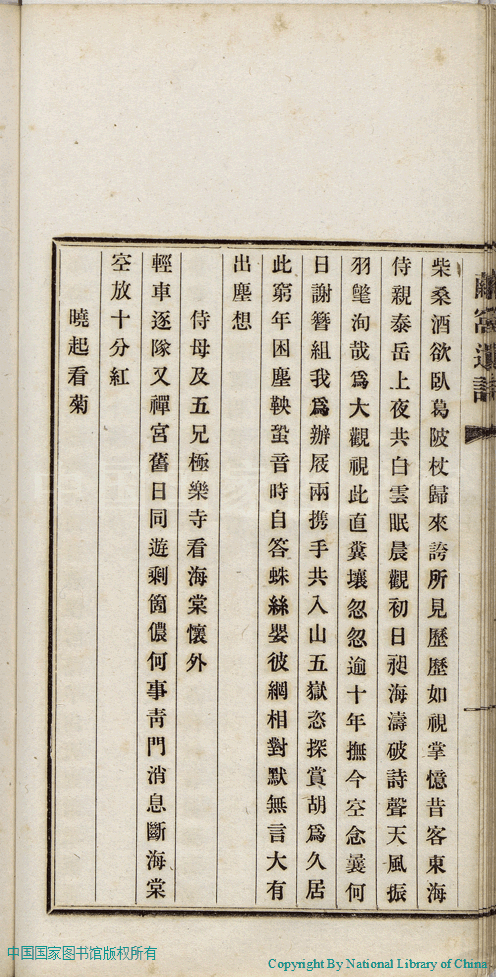 柴桑酒欲臥葛陂杖歸來誇所見歷歷如視掌憶昔客東海
侍親泰岳上夜共白雲眠晨觀初日昶海濤破詩聲天風振
羽氅洵哉爲大觀視此直糞壤忽忽逾十年撫今空念曩何
日謝簪組我爲辦屐兩携手共入山五嶽恣探賞胡爲久居
此窮年困塵鞅蛩音時自答蛛絲嬰彼網相對默無言大有
出塵想
侍母及五兄極樂寺看海棠懷外
輕車逐隊又禪宮舊日同遊剩箇儂何事靑門消息斷海棠
空放十分紅
曉起看菊
中国国家图书馆版权所有
Copyright By National Library of China